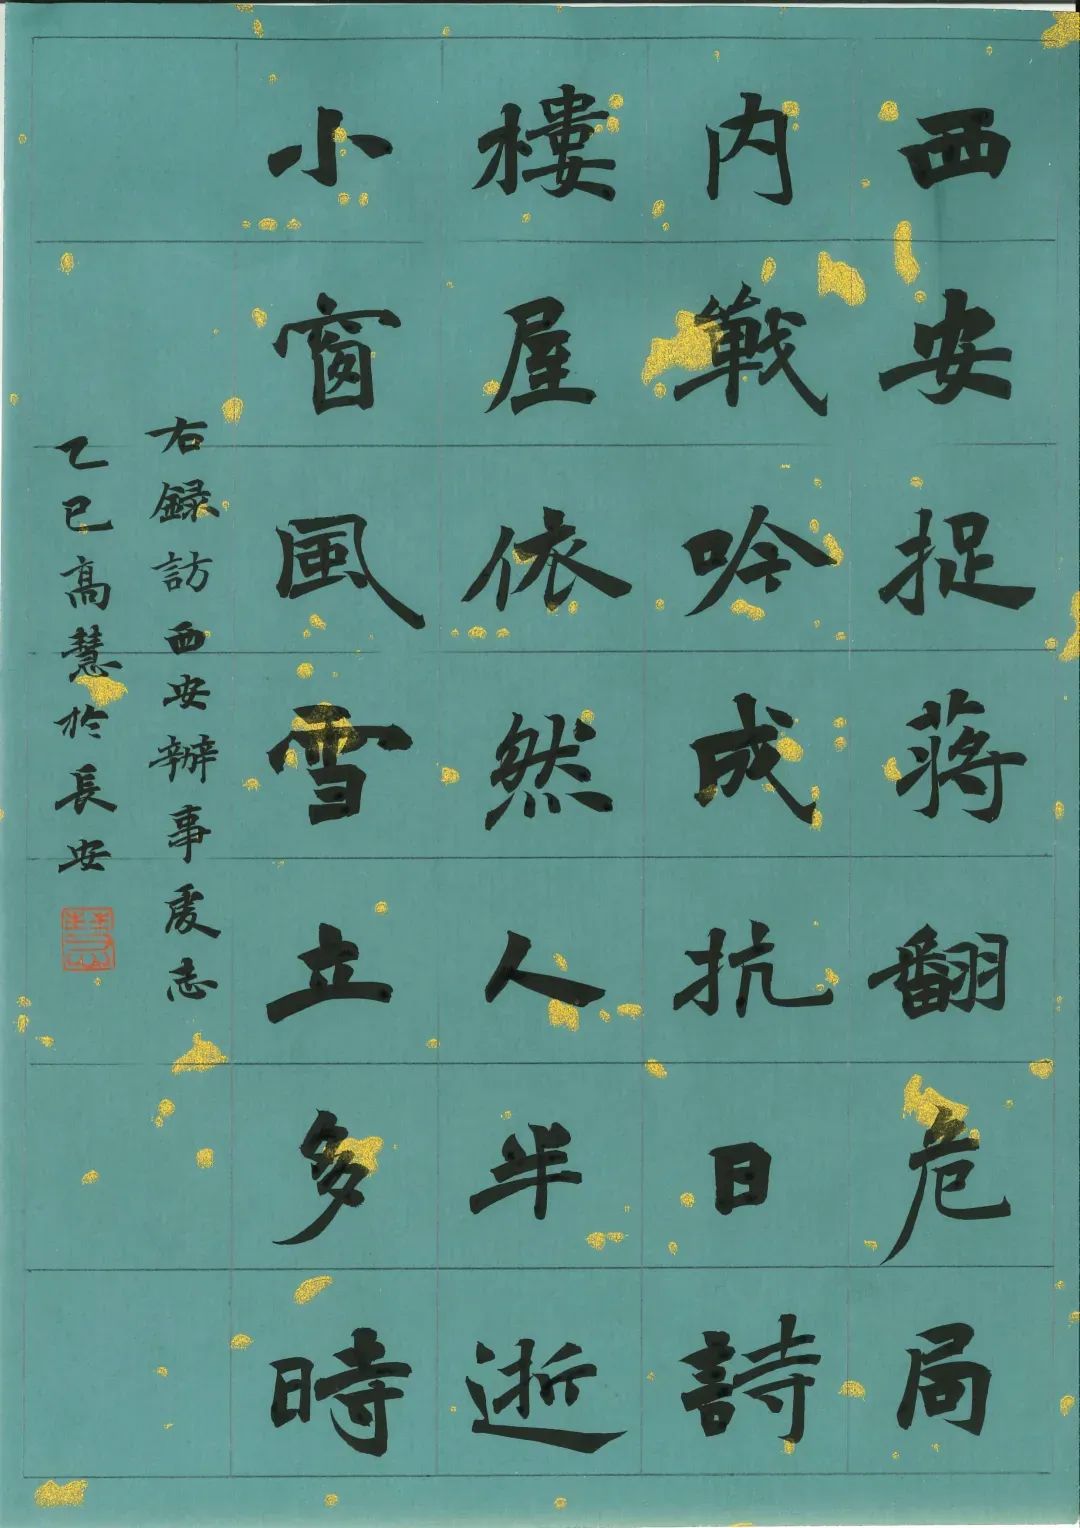 西安捉蔣翻危局
内戰吟成抗日詩
樓屋依然人半逝
小窗風雪立多時
右録訪西安辦事處志
乙巳高慧於長安
慧